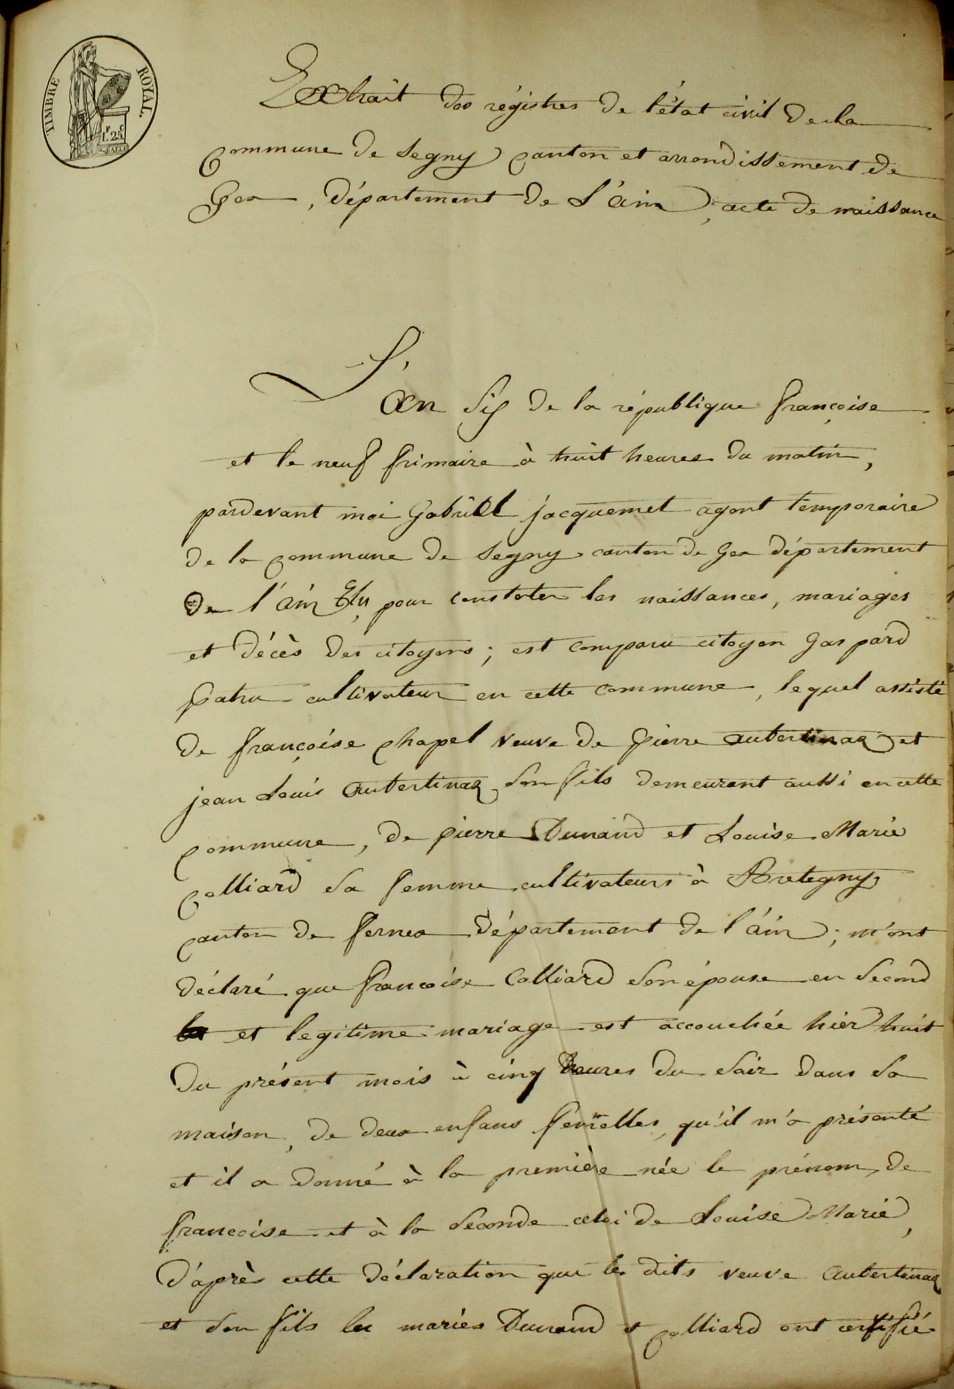 TIMBRE ROYAL
Extrait des régistres de l'état civil de la
commune de Segny canton et arrondissement de
Gex, département de L'ain, acte de naissance
L'an six de la république françoise
et le neuf frimaire à huit heures du matin,
pardevant moi Gabriel jacquemet agent temporaire
de la commune de Segny canton de Gex département
de l'ain Elu pour constater les naissances, mariages
et décès des citoyens; est comparu citoyen Gaspard
cultivateur en cette commune, lequel assisté
de françoise Chapel veuve de pierre aubertinaz et
jean Louis aubertinaz son fils demeurant aussi en cette
commune, de pierre Dunand et Louise Marie
Colliard sa femme cultivateurs à Bretegny
canton de fernex département de l'ain; m'ont
déclaré que francoise Colliard son épouse en second
et legitime mariage est accouchée hier huit
du présent mois à cinq heures du soir dans sa
maison, de deux enfans femelles, qu'il m'a présenté
et il a donné à la première née le prénom de
francoise et à la seconde celui de Louise Marie,
d'après cette déclaration que les dits veuve aubertinaz
et son fils les mariés Dunand et Colliard ont certifié